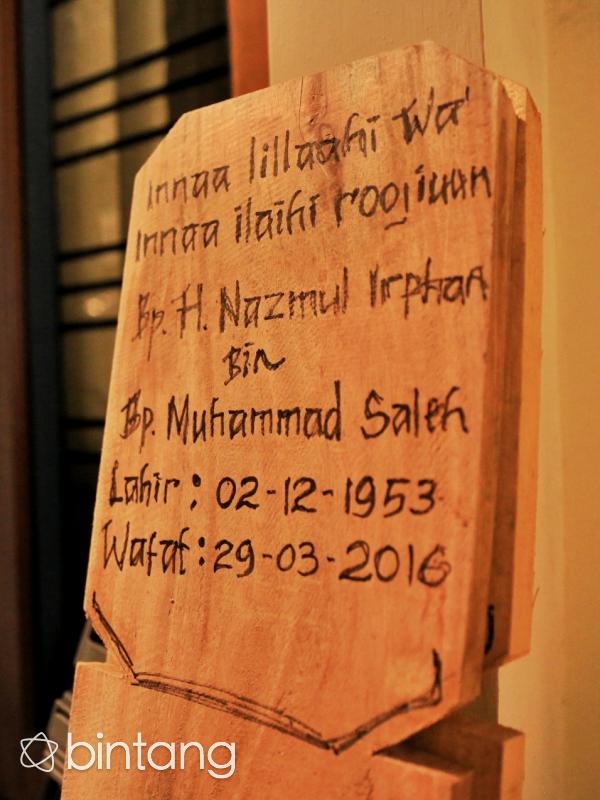 innaa lillaahi wa'
innaa ilaihi roojiuun
Bp. H. Nazmul Irphan
Bin
Bp. Muhammad Saleh
Lahir : 02-12-1953
Wafat : 29-03-2016
bintang